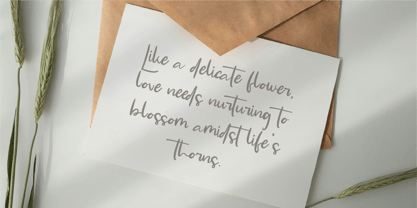 Like a delicate flower,
love needs nurturing to
blossom amidst life's
thorns.